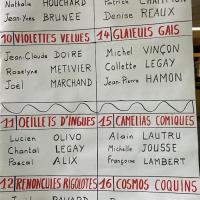 Nathalie HOUCHARD
Jean-Yves BRUNEE
10 VIOLETTES VELUES
Jean-Claude DOIRE
Roselyne METIVIER
Joël MARCHAND
11 OEILLETS D'INGUES
Lucien OLIVO
Chantal LEGAY
Pascal ALIX
12 RENONCULES RIGOLOTES
Patrick
Denise REAUX
14 GLAIEULS GAIS
Michel VINÇON
Collette LEGAY
Jean-Pierre HAMON
15 CAMELIAS COMIQUES
Alain LAUTRU
Michelle JOUSSE
Françoise LAMBERT
16 COSMOS COQUINS